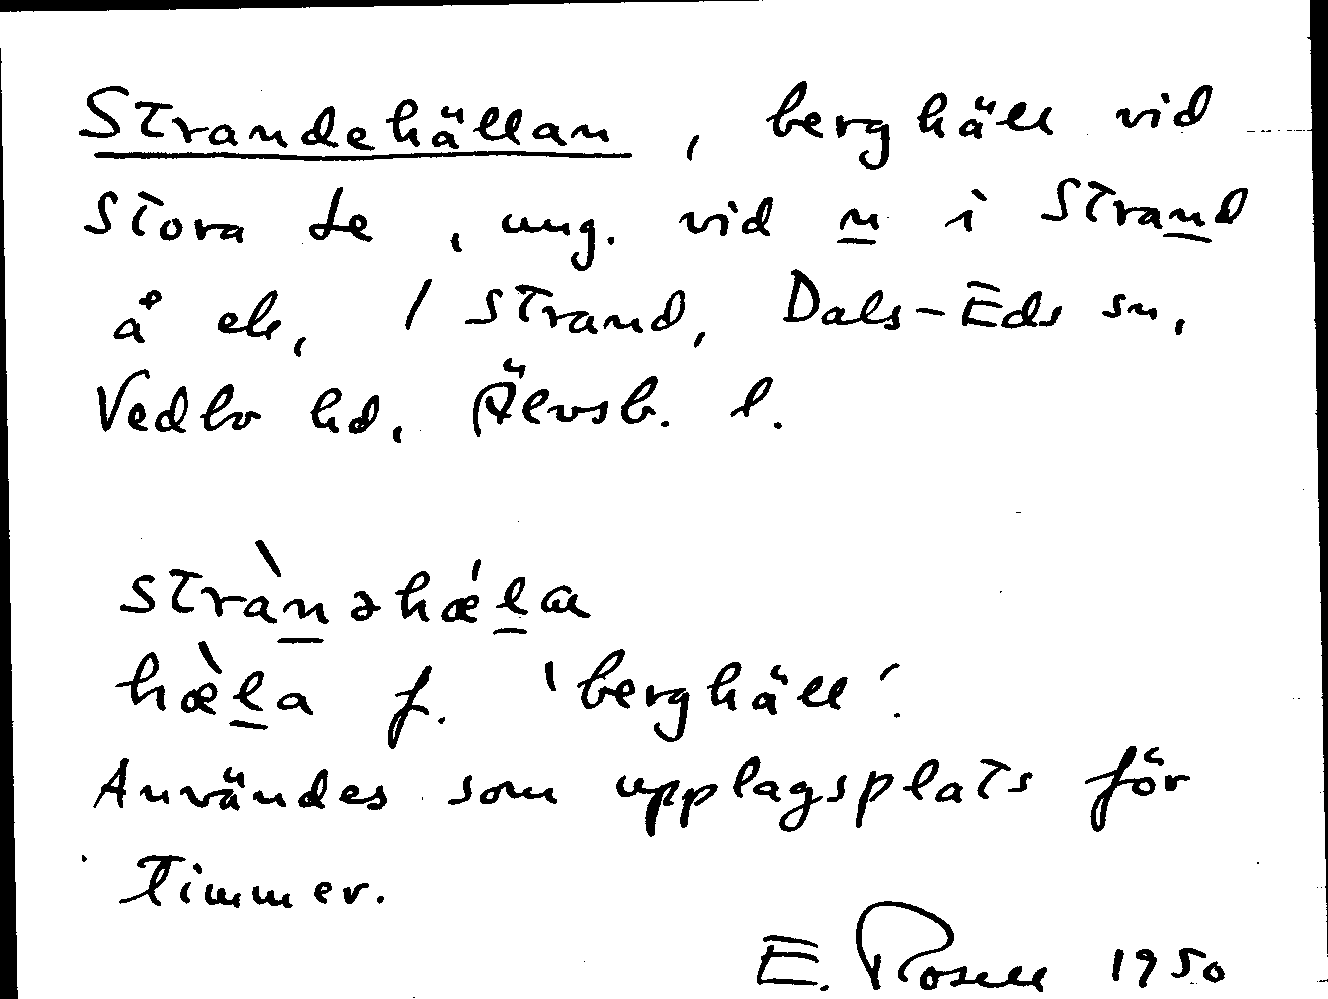 Strandehällan, berghäll vid
Stora Le, ung. vid n i Strand
å ek, / Strand, Dals-Eds sn,
Vedbo hd, Älvsb. l.
stràn̲əhǽl̲a
hæ̀l̲a f. 'berghäll'.
Användes som upplagsplats för
timmer.
E. Rosell 1950